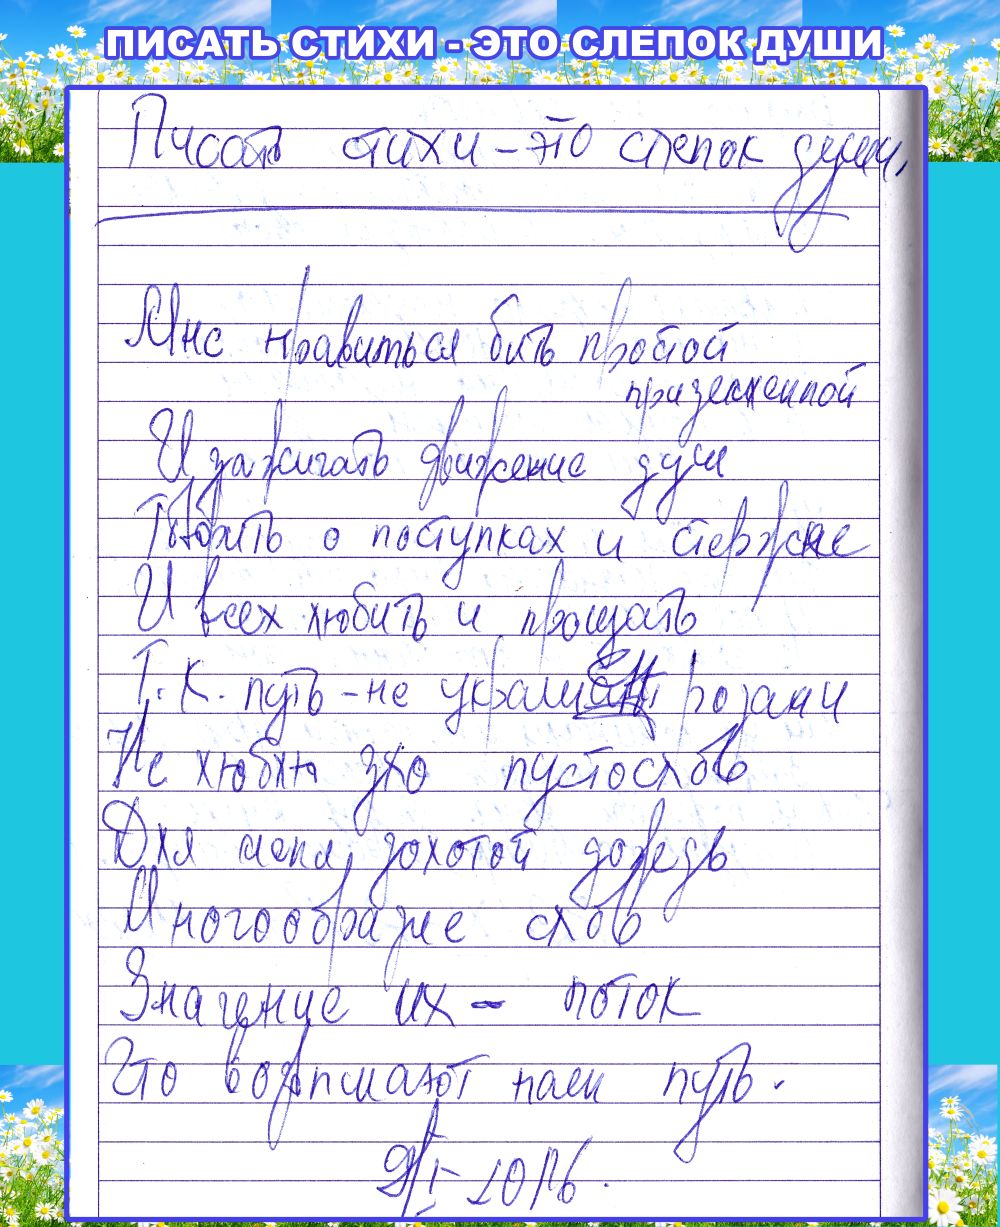 ПИСАТЬ СТИХИ - ЭТО СЛЕПОК ДУШИ
Писать стихи - это слепок души,
Мне нравиться быть простой
приземленной
И зажигать движение души
Творить о поступках и стержне
И всех любить и прощать
Т.к. путь - не украшен розами
Не люблю эхо пустослов
Для меня, золотой дождь
Многообразие слов
Значение их - поток
Что возвышают наш путь.
I - 2016.